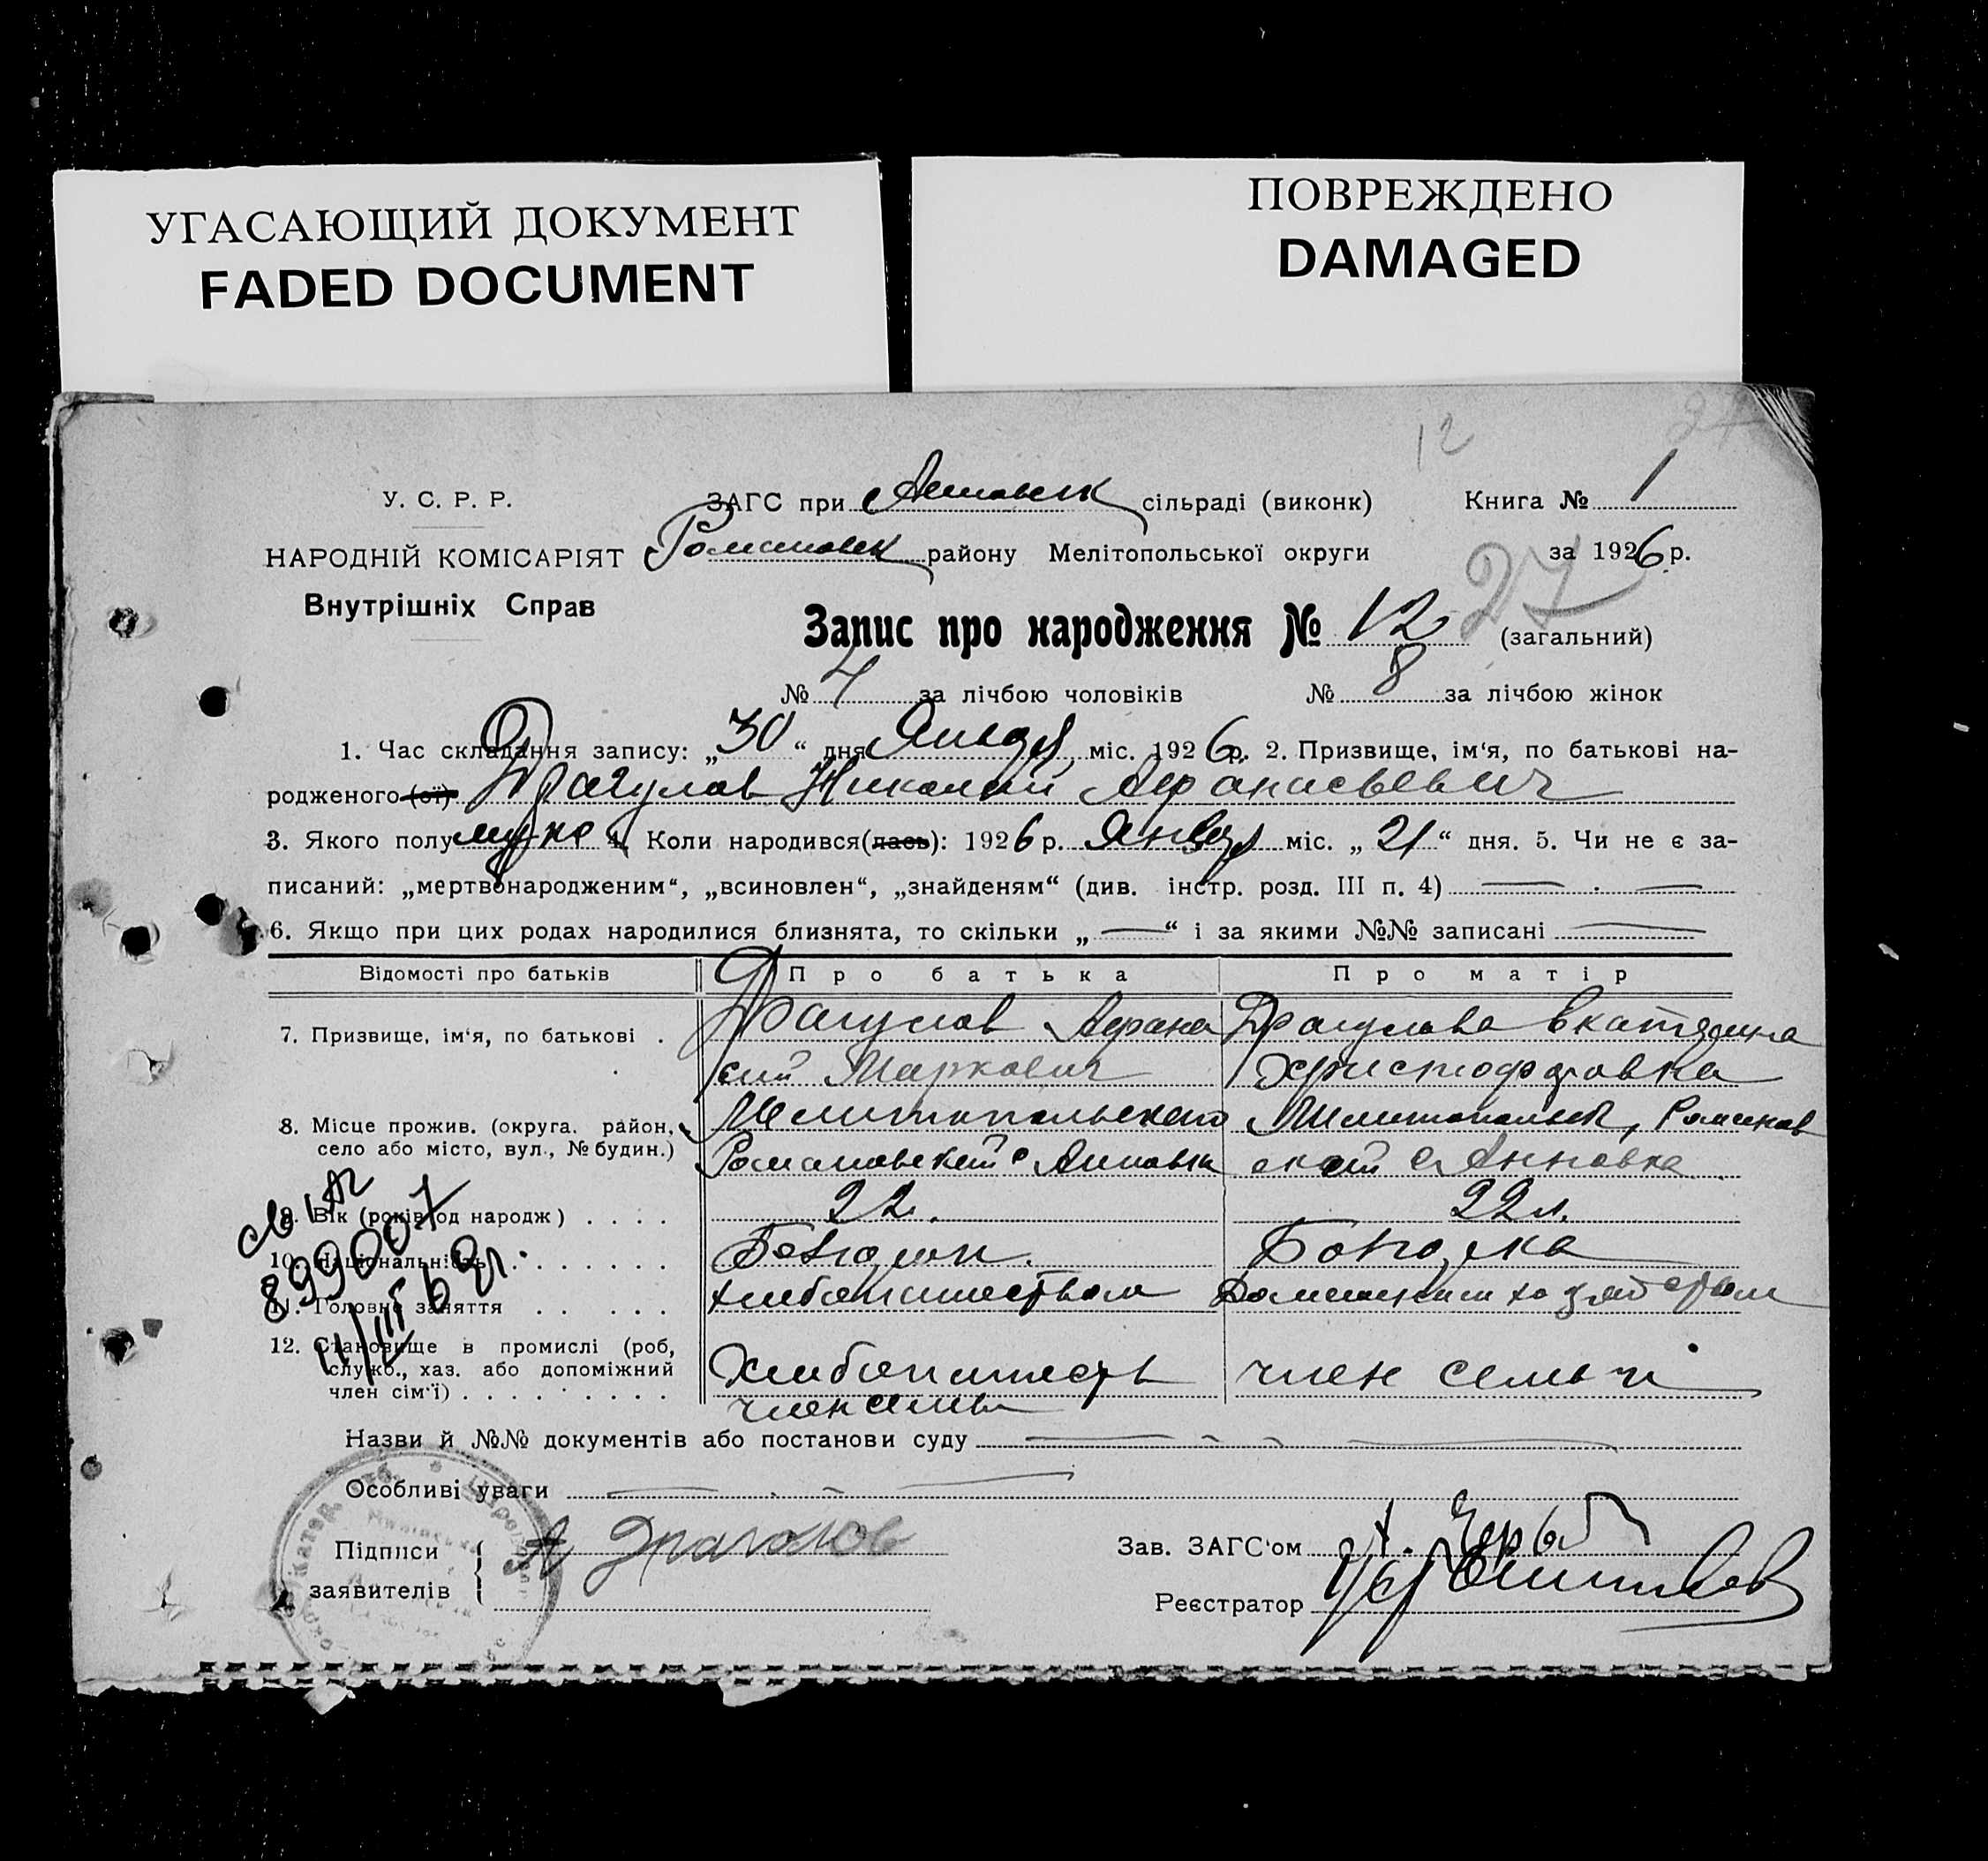 УГАСАЮЩИЙ ДОКУМЕНТ
FADED DOCUMENT
ПОВРЕЖДЕНО
DAMAGED
12
27
У. С. Р. Р.
ЗАГС при сільраді (виконк)
Книга № 1
НАРОДНІЙ КОМІСАРІЯТ
Романовск району Мелітопольської округи
за 1926 р.
Внутрішніх Справ
27
Запис про народження № 12 (загальний)
№ 4 за лічбою чоловіків № 8 за лічбою жінок
1. Час складання запису: „30“ дня Января міс. 1926 р. 2. Призвище, ім‘я, по батькові на-
родженого (ої) Драгулов Николай Афанасьевич
3. Якого полу муж 4. Коли народився(лась): 1926 р. Января міс. „21“ дня. 5. Чи не є за-
писаний: „мертвонародженим“, „всиновлен“, „знайденям“ (див. інстр. розд. III п. 4)
6. Якщо при цих родах народилися близнята, то скільки „—“ і за якими №№ записані —
Відомості про батьків
Про батька
Про матір
7. Призвище, ім‘я, по батькові .
Драгулов Афана
сий Маркович
Драгулова Екатерина
Христофоровна
8. Місце прожив. (округа. район,
село або місто, вул., № будин.)
Мелитопольского
Романовский с Анновка
Мелитопольск, Романов
ский с Анновка
9. Вік (років од народж) . . . .
22.
22 л.
10. Національність . . . . . . .
Болгарин.
Болгарка
11. Головне заняття . . . . .
хлебопашеством
Домашним хозяйством
12. Становище в промислі (роб,
служб., хаз. або допоміжний
член сім‘ї) . . . . . . . . .
Хлебопашест
член семьи
член семьи
899007
11/III 69г.
Назви й №№ документів або постанови суду
Особливі уваги
Підписи
заявителів
А Драголов
Зав. ЗАГС‘ом
Реєстратор